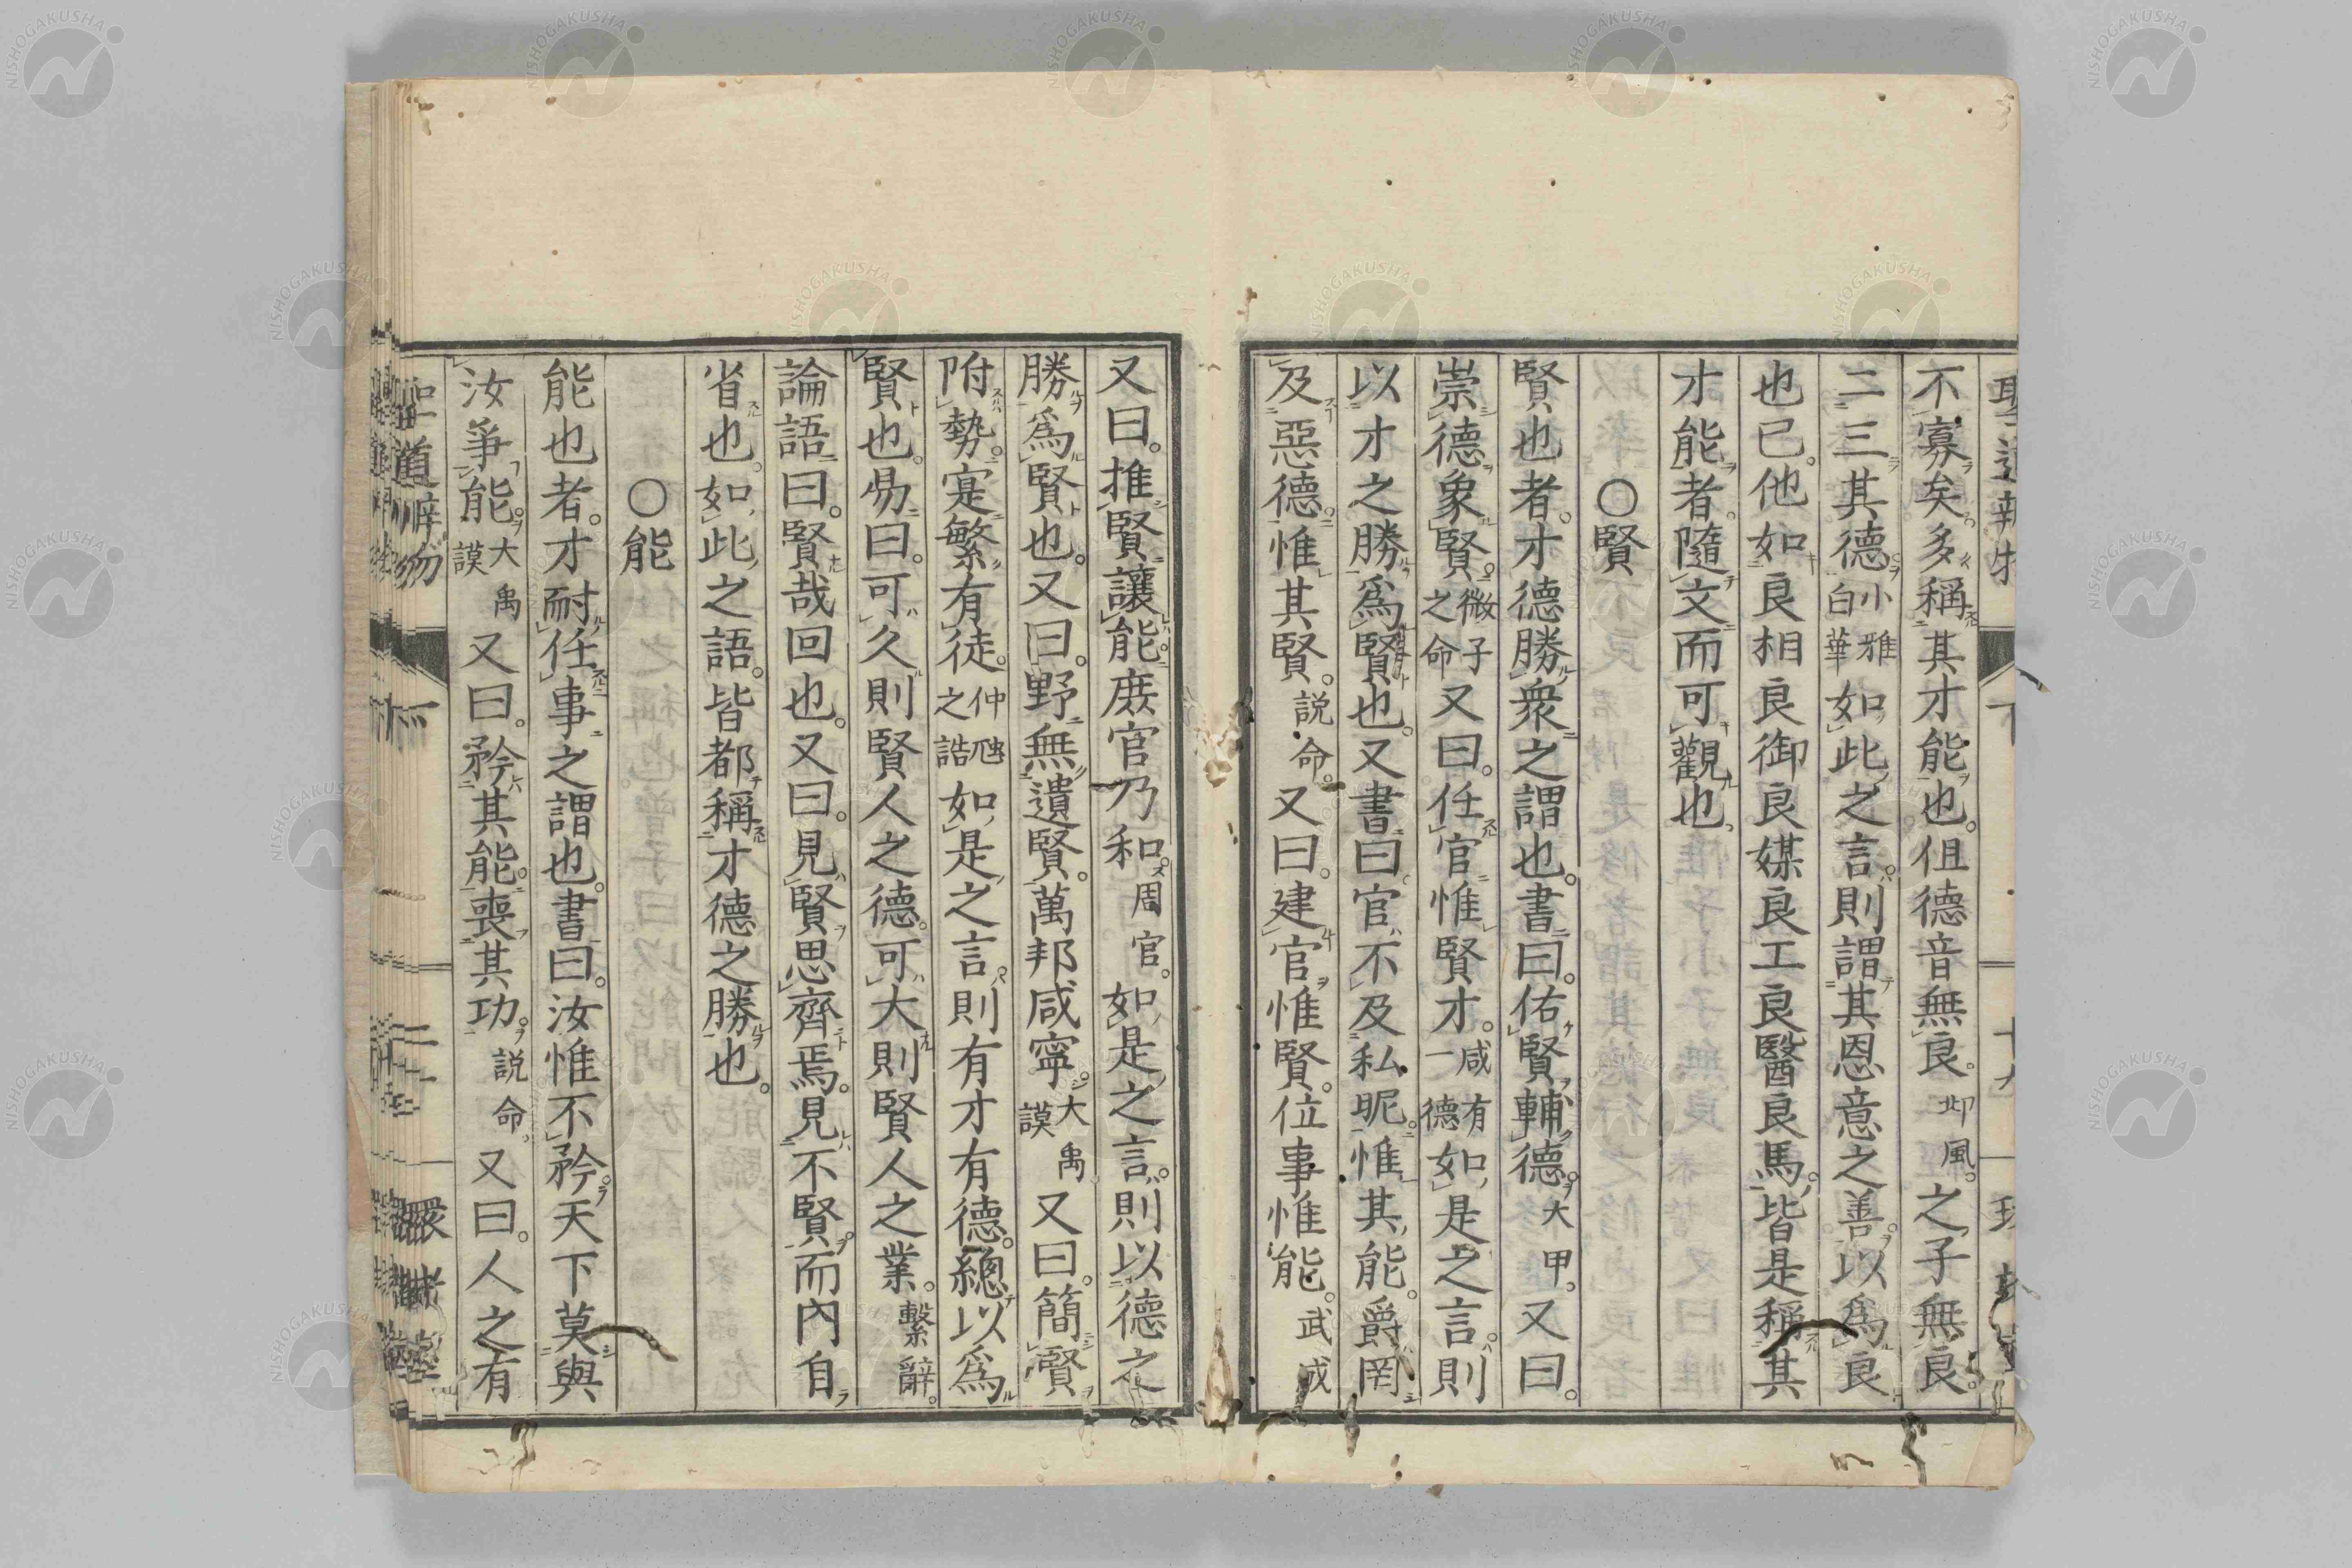 不寡矣多稱其才能也但德音無良邶風之子無良
二三其德小雅白華如此之言則謂其恩意之善以爲良
也已他如良相良御良媒良工良醫良馬皆是稱其
才能者隨文而可觀也
○賢
賢也者才德勝衆之謂也書曰佑賢輔德大甲又曰
崇德象賢微子之命又曰任官惟賢才咸有一德如是之言則
以才之勝爲賢也又書曰官不及私昵惟其能爵罔
及惡德惟其賢說命又曰建官惟賢位事惟能武成
又曰推賢讓能庶官乃和周官如是之言則以德之
勝爲賢也又曰野無遺賢萬邦咸寧大禹謨又曰簡賢
附勢寔繁有徒仲虺之誥如是之言則有才有德總以爲
賢也易曰可久則賢人之德可大則賢人之業繫辭
論語曰賢哉回也又曰見賢思齊焉見不賢而內自
省也如此之語皆都稱才德之勝也
○能
能也者才耐任事之謂也書曰汝惟不矜天下莫與
汝爭能大禹謨又曰矜其能喪其功說命又曰人之有